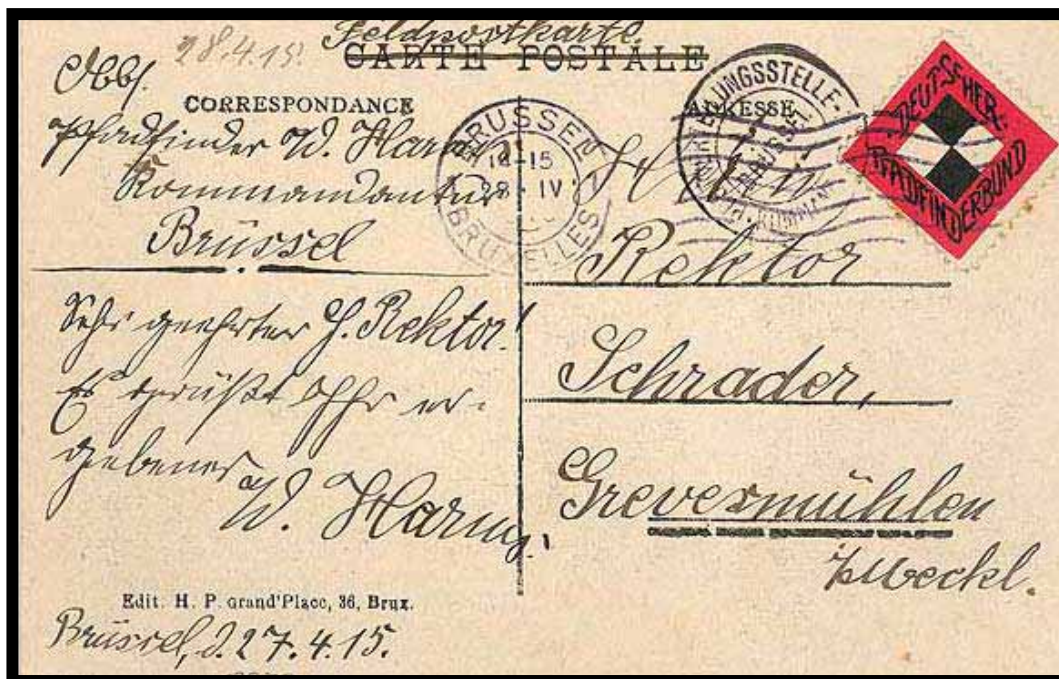 28.4.15.
Feldpostkarte.
CARTE POSTALE
CORRESPONDANCE
ADRESSE
Abs.
Pfadfinder W. Harms
Kommandantur
Brüssel
Sehr geehrter H. Rektor!
Es grüßt Ihr er-
gebener
W. Harms.
Edit. H. P. Grand'Place, 36, Brux.
Brüssel, d. 27.4.15.
BRUSSEL
14-15
28 · IV
BRUXELLES
DEUTSCHER
PFADFINDERBUND
Herrn
Rektor
Schrader,
Grevesmühlen
i/Meckl.